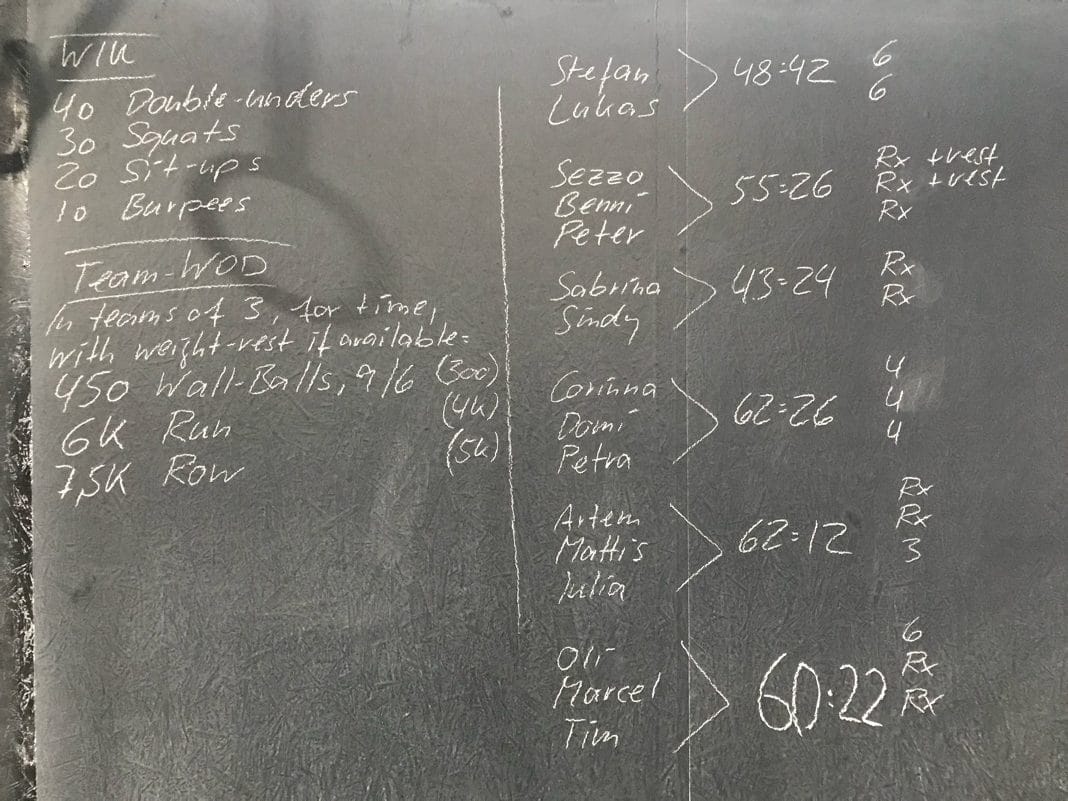 W/U
40 Double-unders
30 Squats
20 Sit-ups
10 Burpees
Team-WOD
In teams of 3, for time,
with weight-vest if available:
450 Wall-Balls, 9/6 (300)
6K Run (4K)
7,5K Row (5K)
Stefan 6
48:42
Lukas 6
Sezzo Rx +vest
Benni 55:26 Rx +vest
Peter Rx
Sabrina Rx
43:24
Sindy Rx
Corinna 4
Domi 62:26 4
Petra 4
Artem Rx
Mattis 62:12 Rx
Julia 3
Oli 6
Marcel 60:22 Rx
Tim Rx